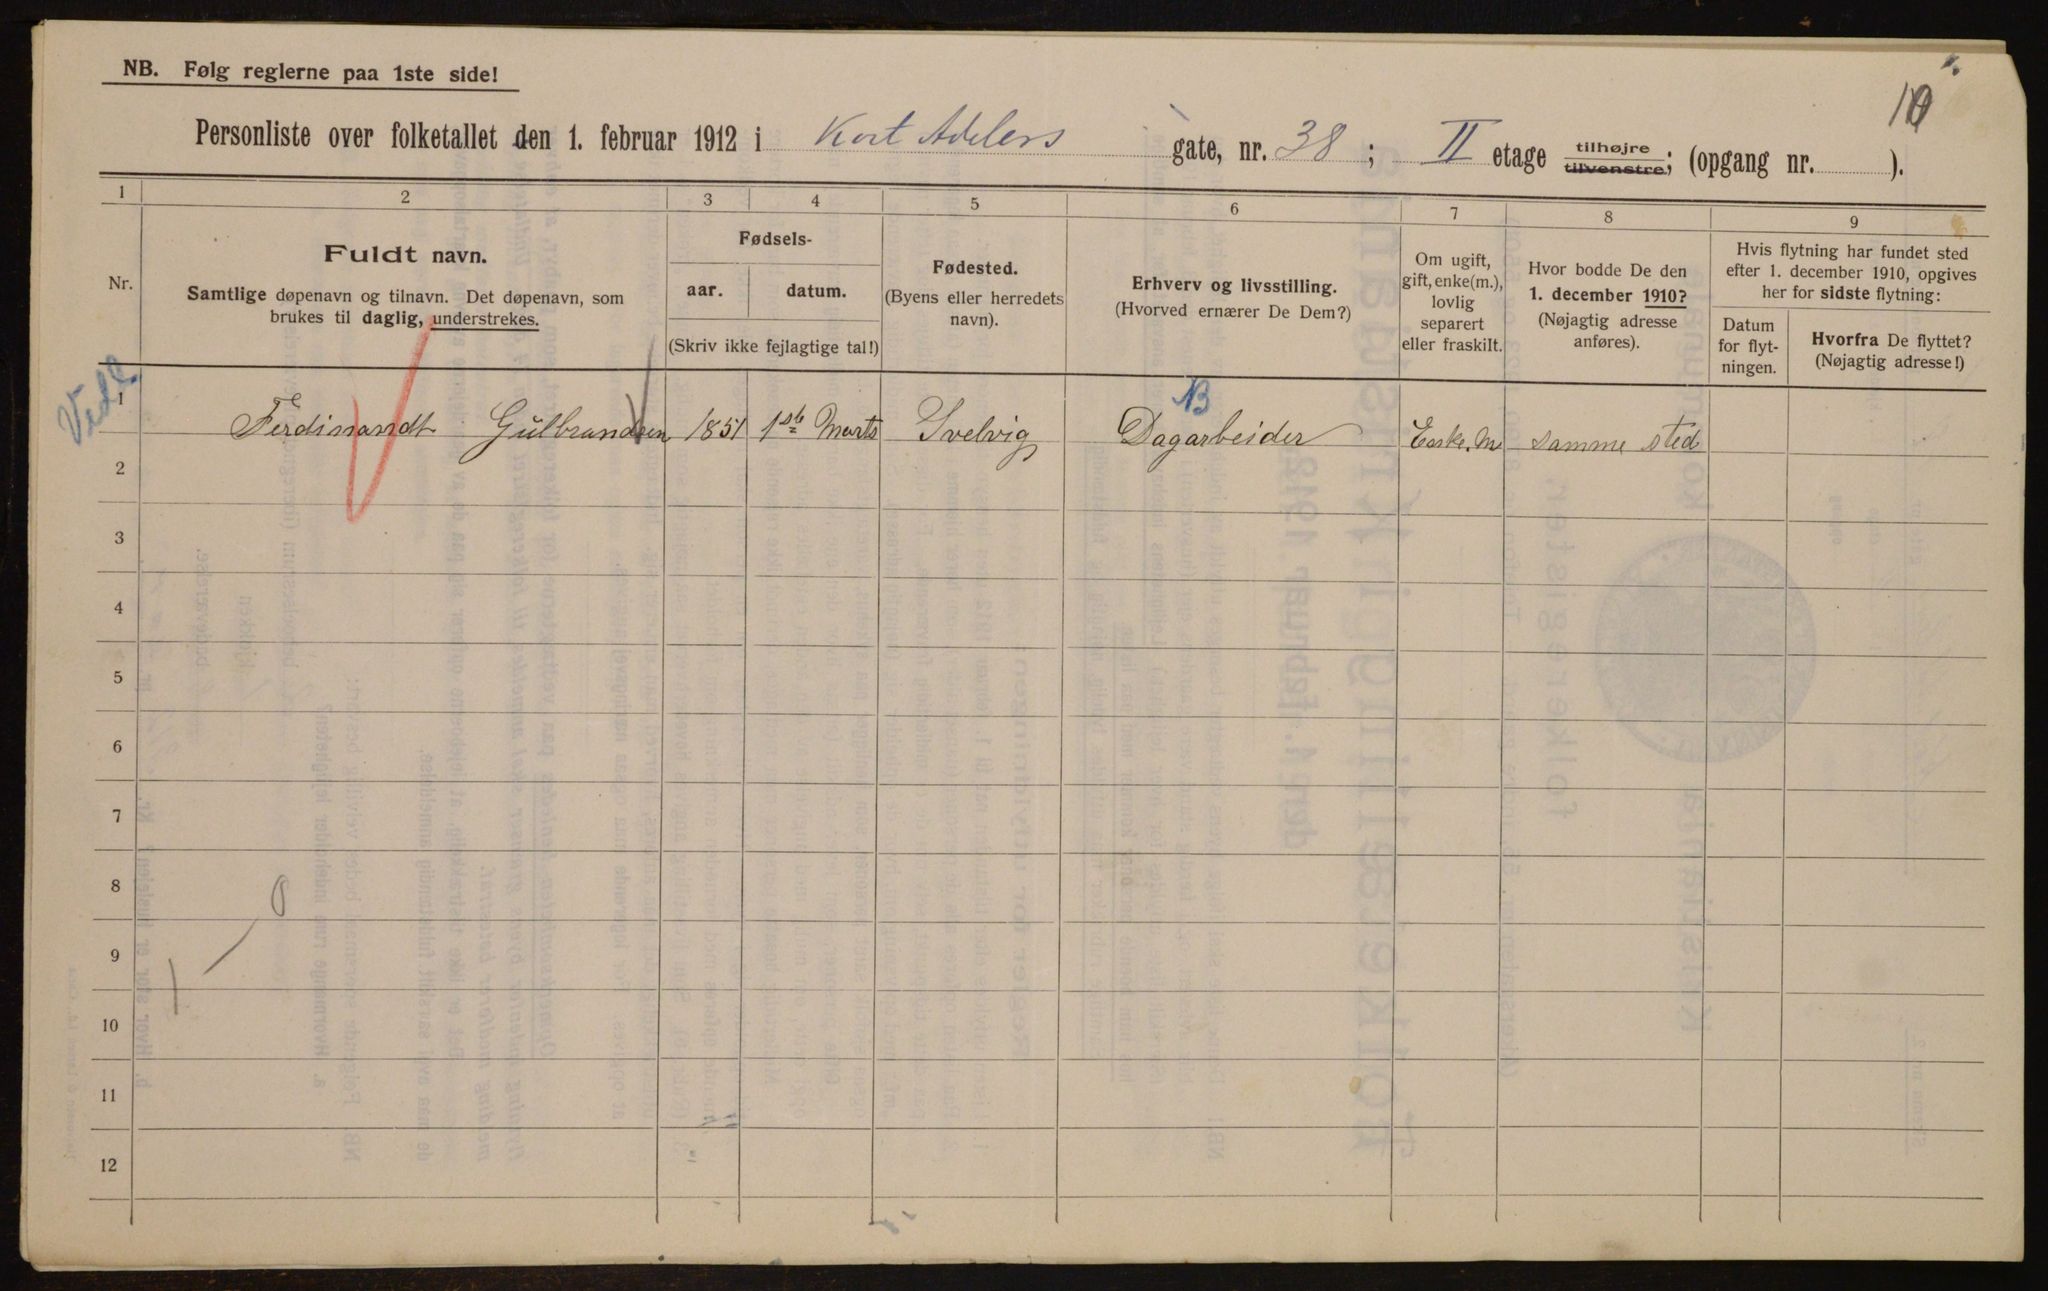 NB. Følg reglerne paa 1ste side!
10
Personliste over folketallet den 1. februar 1912 i Kort Adelers gate, nr. 38; II etage tilhøjre tilvenstre; (opgang nr. ).
1 2 3 4 5 6 7 8 9
Nr.
Fuldt navn.
Samtlige døpenavn og tilnavn. Det døpenavn, som
brukes til daglig, understrekes.
Fødsels-
aar. datum.
(Skriv ikke fejlagtige tal!)
Fødested.
(Byens eller herredets
navn).
Erhverv og livsstilling.
(Hvorved ernærer De Dem?)
Om ugift,
gift, enke(m.),
lovlig
separert
eller fraskilt.
Hvor bodde De den
1. december 1910?
(Nøjagtig adresse
anføres).
Hvis flytning har fundet sted
efter 1. december 1910, opgives
her for sidste flytning:
Datum
for flyt-
ningen.
Hvorfra De flyttet?
(Nøjagtig adresse!)
B
1 Ferdinandt Gulbrandsen 1851 1ste Marts Svelvig Dagarbeider Enke.M samme sted
2
3
4
5
6
7
8
9
10
11
12